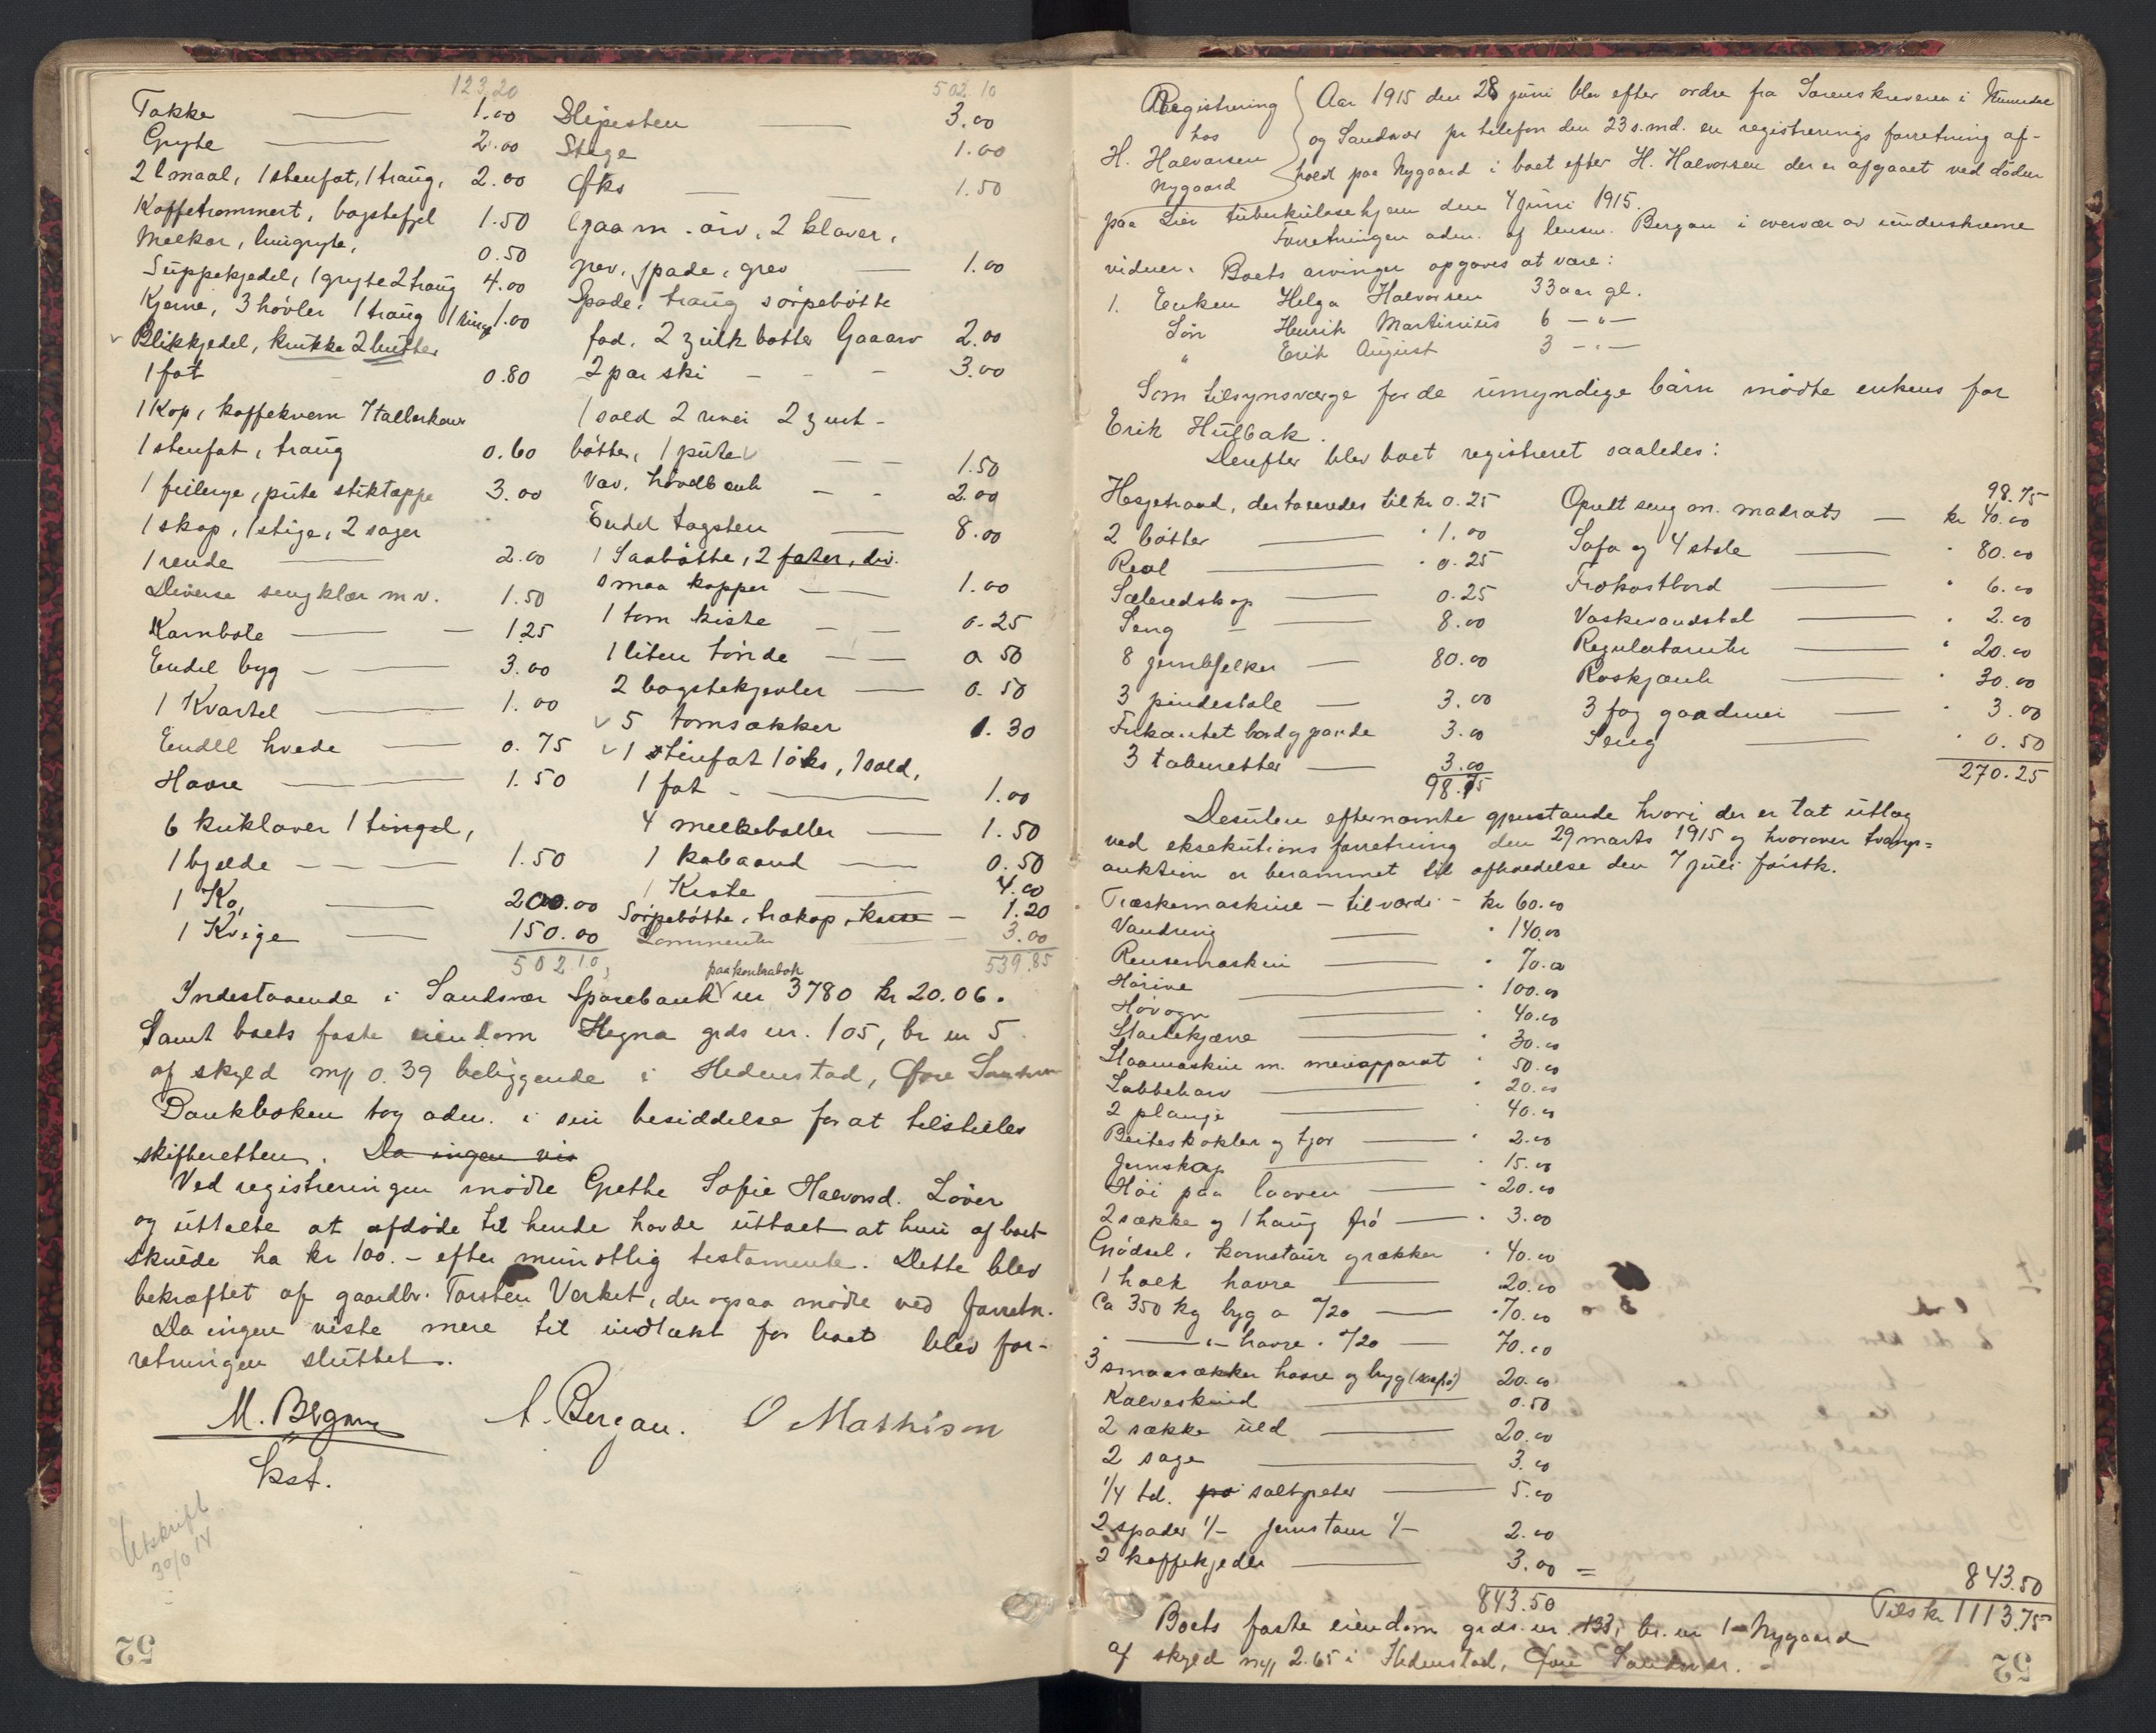 123,20
Takke 1.00
Gryte 2.00
2 l maal, 1 stenfat, 1 traug, 2.00
Kaffetrommert, bagstefjel 1.50
Melkar, limgryte, 0.50
Suppekjedel, 1 gryte 2 traug 4.00
Kjerne, 3 høvler 1 traug 1 ring 1.00
Blikkjedel, krukke 2 butter
1 fat 0.80
1 Kop, kaffekvern 7 tallerkener
1 stenfat, traug 0.60
1 feilerye, pute stiktæppe 3.00
1 skap, 1 stige, 2 sager
1 rende 2.00
Diverse sengklær m v. 1.50
Kornbøle 1.25
Endel byg 3.00
1 Kvartel 1.00
Endel hvede 0.75
Havre 1.50
6 kuklaver 1 tingel,
1 bjelde 1.50
1 Ko, 200.00
1 Kvige 150.00
502 10
502.10
Slipesten 3.00
Stige 1.00
Øks 1.50
Ljaa m. orv, 2 klaver,
grev, spade, grev 1.00
Spade, traug sørpebøtte
fad, 2 zink bøtter ljaaorv 2.00
2 par ski 3.00
1 sold 2 river 2 zink-
bøtter, 1 pute 1.50
Væv, høvelbenk 2.00
Endel tagsten 8.00
1 Saabøtte, 2 fater, div.
smaa kopper 1.00
1 tom kiste 0.25
1 liten tønde 0.50
2 bagstekjevler 0.50
5 tomsækker 1.30
1 stenfat 1 øks, 1 sold,
1 fat 1.00
4 melkeboller 1.50
1 kobaand 0.50
1 Kiste 4.00
Sørpebøtte, trækop, kasse 1.20
Lommeur 3.00
539.85
Indestaaende i Sandsvær Sparebank paa kontrabok nr 3780 kr 20.06.
Samt boets faste eiendom Hegna grds nr. 105, br nr 5
af skyld mrk 0.39 beliggende i Hedenstad, Øvre Sandsvær
Bankboken tog adm. i sin besiddelse for at tilstilles
skifteretten. Da ingen vis
Ved registreringen mødte Grethe Sofie Halvorsd. Løver
og uttalte at afdøde til hende havde uttalt at hun af boet
skulde ha kr 100.- efter mundtlig testamente. Dette blev
bekræftet af gaardbr. Torsten Verket, der ogsaa mødte ved forretn.
Da ingen viste mere til indtækt for boet blev for-
retningen sluttet.
M. Bergan A. Bergan. O Mathison
kst.
Utskrift
30/9 14
52
Registrering
hos
H. Halvorsen
Nygaard
Aar 1915 den 28 juni blev efter ordre fra Sorenskriveren i Numedal
og Sandsvær pr telefon den 23 s. md. en registrerings forretning af-
holdt paa Nygaard i boet efter H. Halvorsen der er afgaaet ved døden
paa Lier tuberkulosehjem den 4 juni 1915.
Forretningen adm. af lensm. Bergan i overvær av underskrevne
vidner. Boets arvinger opgaves at være:
1. Enken Helga Halvorsen 33 aar gl.
Søn Henrik Martinius 6 — " —
" Erik August 3 — " —
Som tilsynsværge for de umyndige barn mødte enkens far
Erik Hulbak.
Derefter blev boet registreret saaledes:
Hesjetraad, der taxeredes til kr 0.25
2 bøtter 1.00
Reol 0.25
Sæleredskap 0.25
Seng 8.00
8 jernbjelker 80.00
3 pindestole 3.00
Firkantet bord og pande 3.00
3 taburetter 3.00
98.75
98.75
Opredt seng m. madrats kr 40.00
Sofa og 4 stole 80.00
Frokostbord 6.00
Vaskevandstel 2.00
Regulatoruhr 20.00
Roskjænk 30.00
3 fag gardiner 3.00
Seng 0.50
270.25
Desuten efternævnte gjenstande hvori der er tat utlæg
ved eksekutions forretning den 29 marts 1915 og hvorover tvangs-
auktion er berammet til afholdelse den 7 juli førstk.
Træskemaskine - til værdi - kr 60.00
Vandring 140.00
Rensemaskin 70.00
Hørive 100.00
Høvogn 40.00
Staukjærre 30.00
Slaamaskine m. meieapparat 50.00
Labbeharv 20.00
2 plauger 40.00
Beitesskokler og tjor 2.00
Jernskap 15.00
Høi paa laaven 20.00
2 sække og 1 haug frø 3.00
Gjødsel, kornstaur og rækker 40.00
1 hæk havre 20.00
Ca 350 kg byg a 0/20 70.00
" — " — havre " 0/20 70.00
3 smaasækker havre og byg (saafrø) 20.00
Kalveskind 0.50
2 sække uld 20.00
2 sage 3.00
1/4 td. salpeter 5.00
2 spader 1/- Jernstaur 1/- 2.00
2 kaffekjedler 3.00 = 843.50
843.50 Tils kr 1113.75
Boets faste eiendom grds. nr. 133, br. nr 1 - Nygaard
af skyld mrk 2.65 i Hedenstad, Øvre Sandsvær.
52